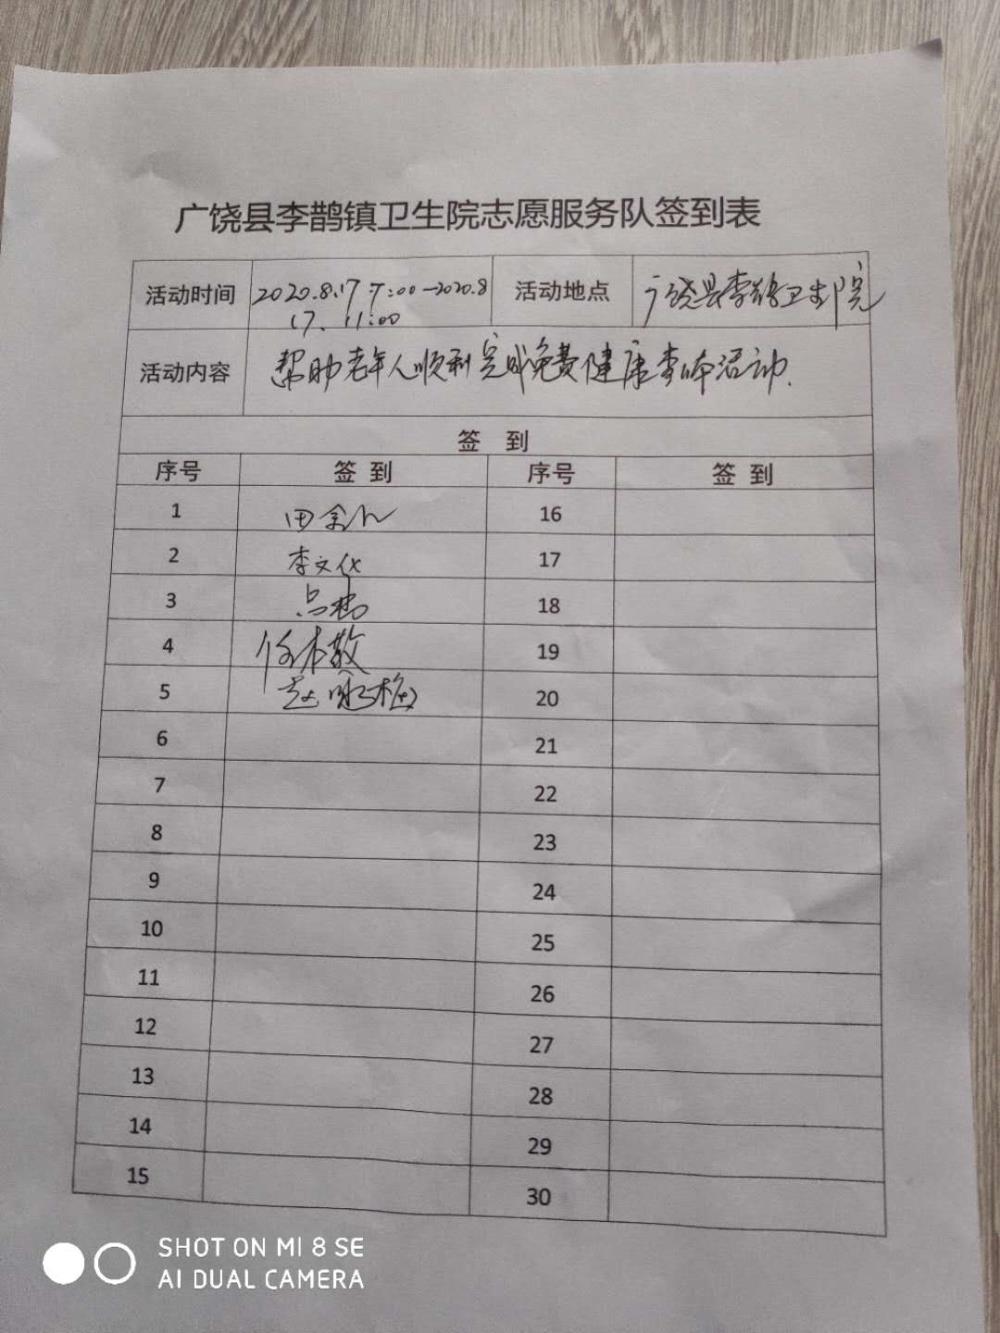 广饶县李鹊镇卫生院志愿服务队签到表
活动时间 2020.8.17 7:00—2020.8 活动地点 广饶县李鹊卫生院
17. 11:00
活动内容 帮助老年人顺利完成免费健康查体活动.
签 到
序号 签 到 序号 签 到
1 田 16
2 李文化 17
3 18
4 任本敬 19
5 赵咏梅 20
6 21
7 22
8 23
9 24
10 25
11 26
12 27
13 28
14 29
15 30
SHOT ON MI 8 SE
AI DUAL CAMERA